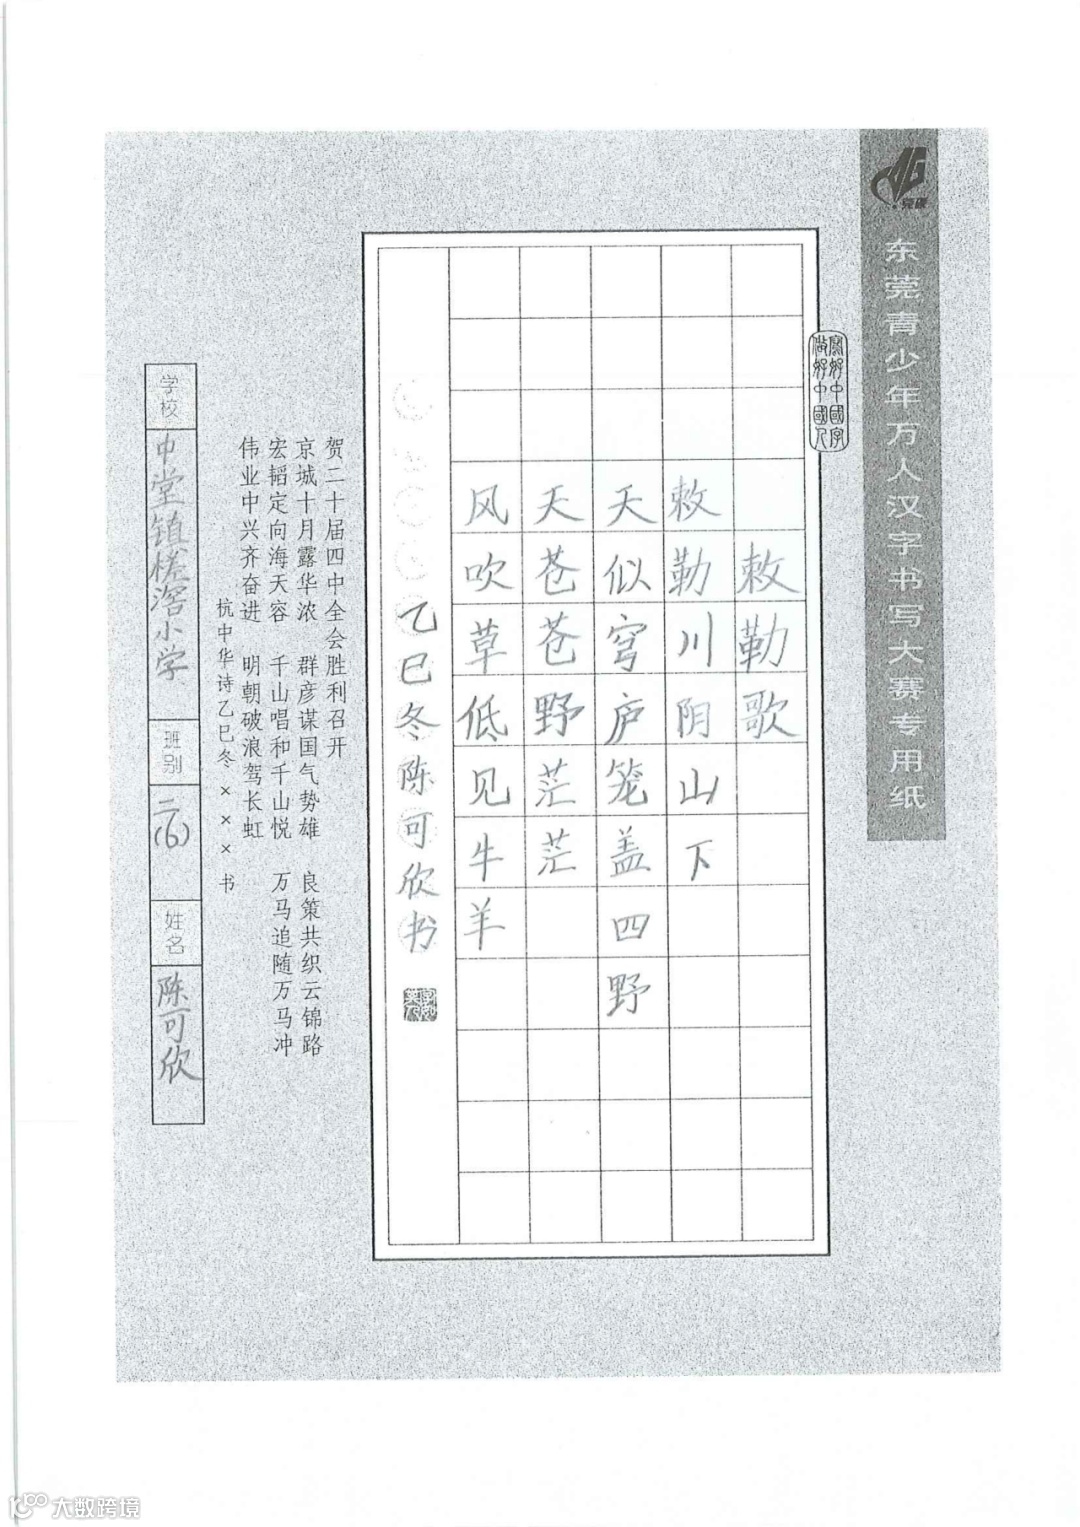 东莞青少年万人汉字书写大赛专用纸
写好中國字
做好中國人
敕勒歌
敕勒川阴山下
天似穹庐笼盖四野
天苍苍野茫茫
风吹草低见牛羊
乙巳冬陈可欣书
贺二十届四中全会胜利召开
京城十月露华浓 群彦谋国气势雄 良策共织云锦路
宏韬定向海天容 千山唱和千山悦 万马追随万马冲
伟业中兴齐奋进 明朝破浪驾长虹
杭中华诗乙巳冬×××书
学校 中堂镇槎滘小学 班别 二(6) 姓名 陈可欣
大数跨境